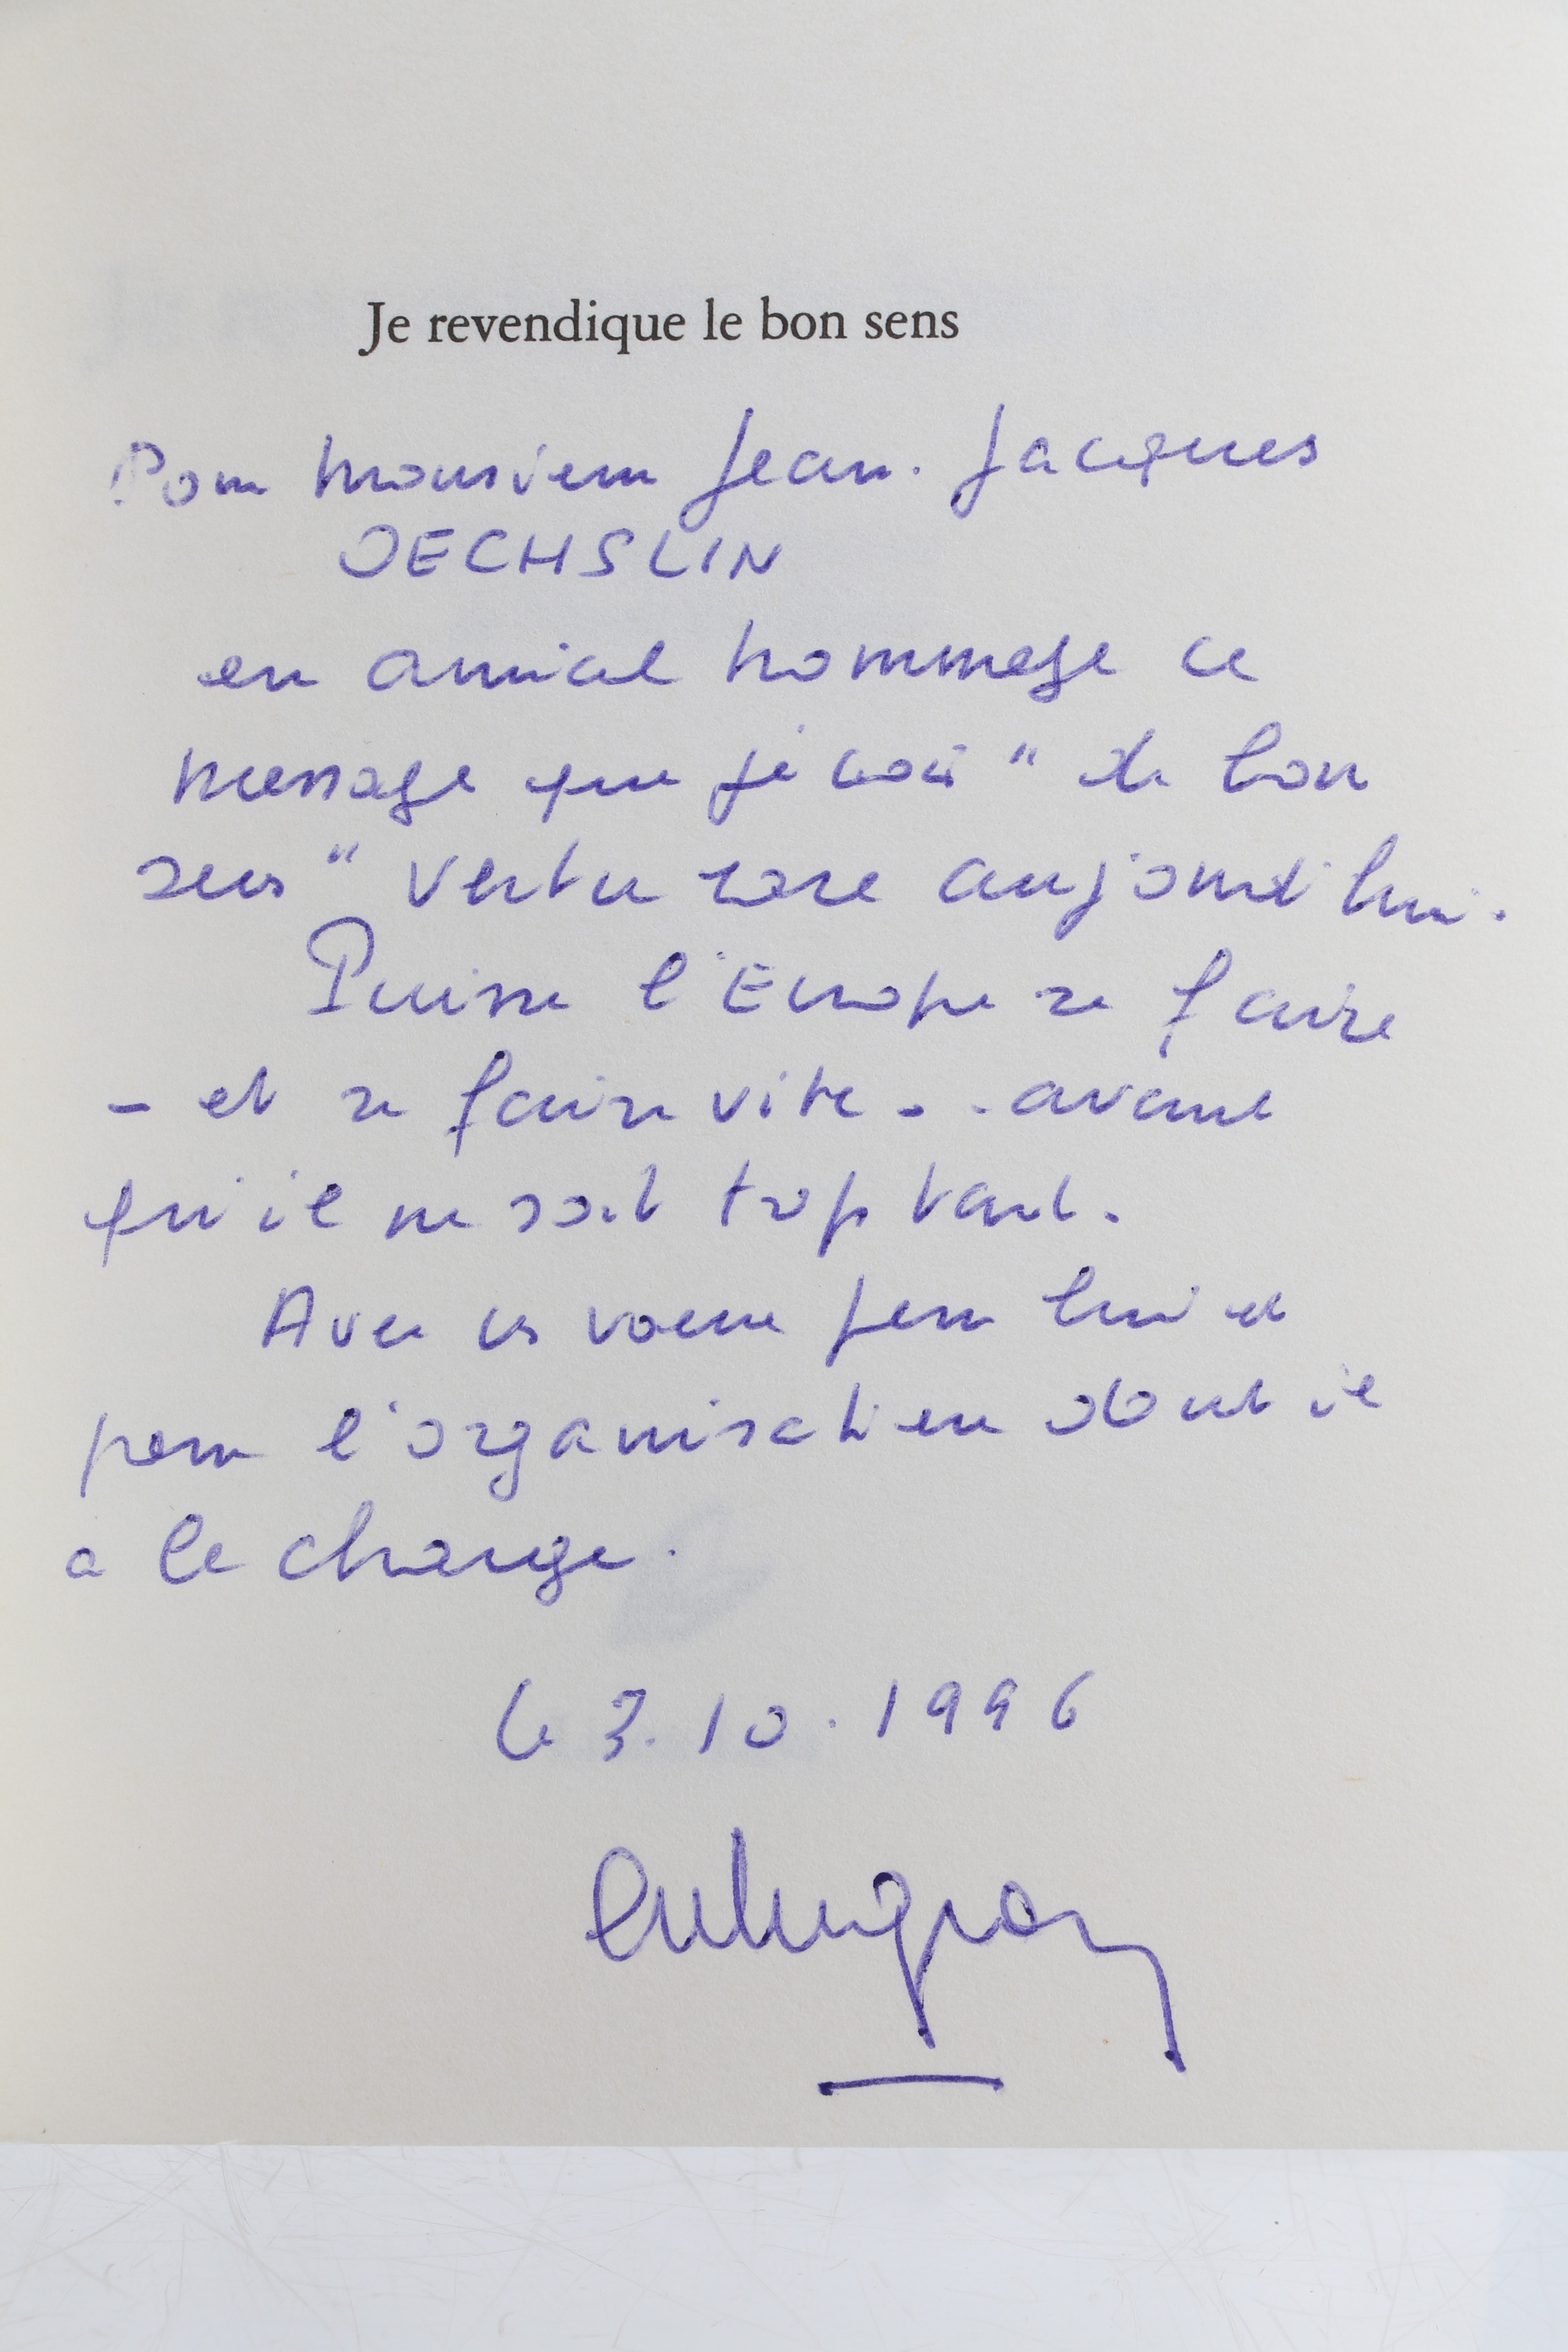 Je revendique le bon sens
Pour Monsieur Jean-Jacques
OECHSLIN
en amical hommage ce
message que je crois " de bon
sens " vertu rare aujourd'hui.
Puisse l'Europe se faire
- et se faire vite .. avant
qu'il ne soit trop tard.
Avec ces voeux pour lui et
pour l'organisation dont il
a la charge.
le 3.10.1996